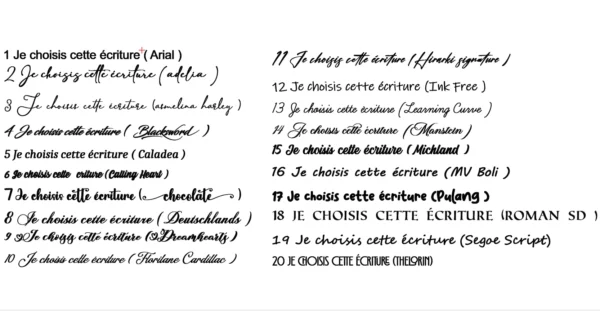 1 Je choisis cette écriture ( Arial )
2 Je choisis cette écriture ( adelia )
3 Je choisis cette écriture (asmelina harley )
4 Je choisis cette écriture ( Blacksword )
5 Je choisis cette écriture ( Caladea )
6 Je choisis cette criture (Calling Heart )
7 Je choisis cette écriture ( chocolate )
8 Je choisis cette écriture ( Deutschlands )
9 Je choisis cette écriture (Dreamhearts )
10 Je choisis cette écriture ( Floritane Cardillac )
11 Je choisis cette écriture (Hiraki signature )
12 Je choisis cette écriture (Ink Free )
13 Je choisis cette écriture (Learning Curve )
14 Je choisis cette écriture (Manstein)
15 Je choisis cette écriture ( Michland )
16 Je choisis cette écriture (MV Boli )
17 Je choisis cette écriture (Pulang )
18 JE CHOISIS CETTE ÉCRITURE (ROMAN SD )
19 Je choisis cette écriture (Segoe Script)
20 JE CHOISIS CETTE ÉCRITURE (THELORIN)